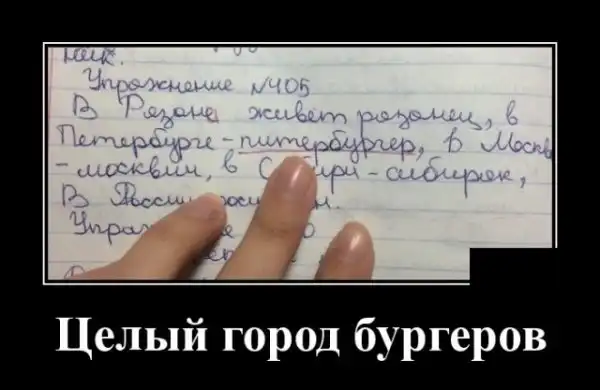 Упражнение №405
В Рязане живет рязанец, в
Петербурге - питербургер, в Москве
- москвич, в Сибири - сибиряк,
В
Целый город бургеров